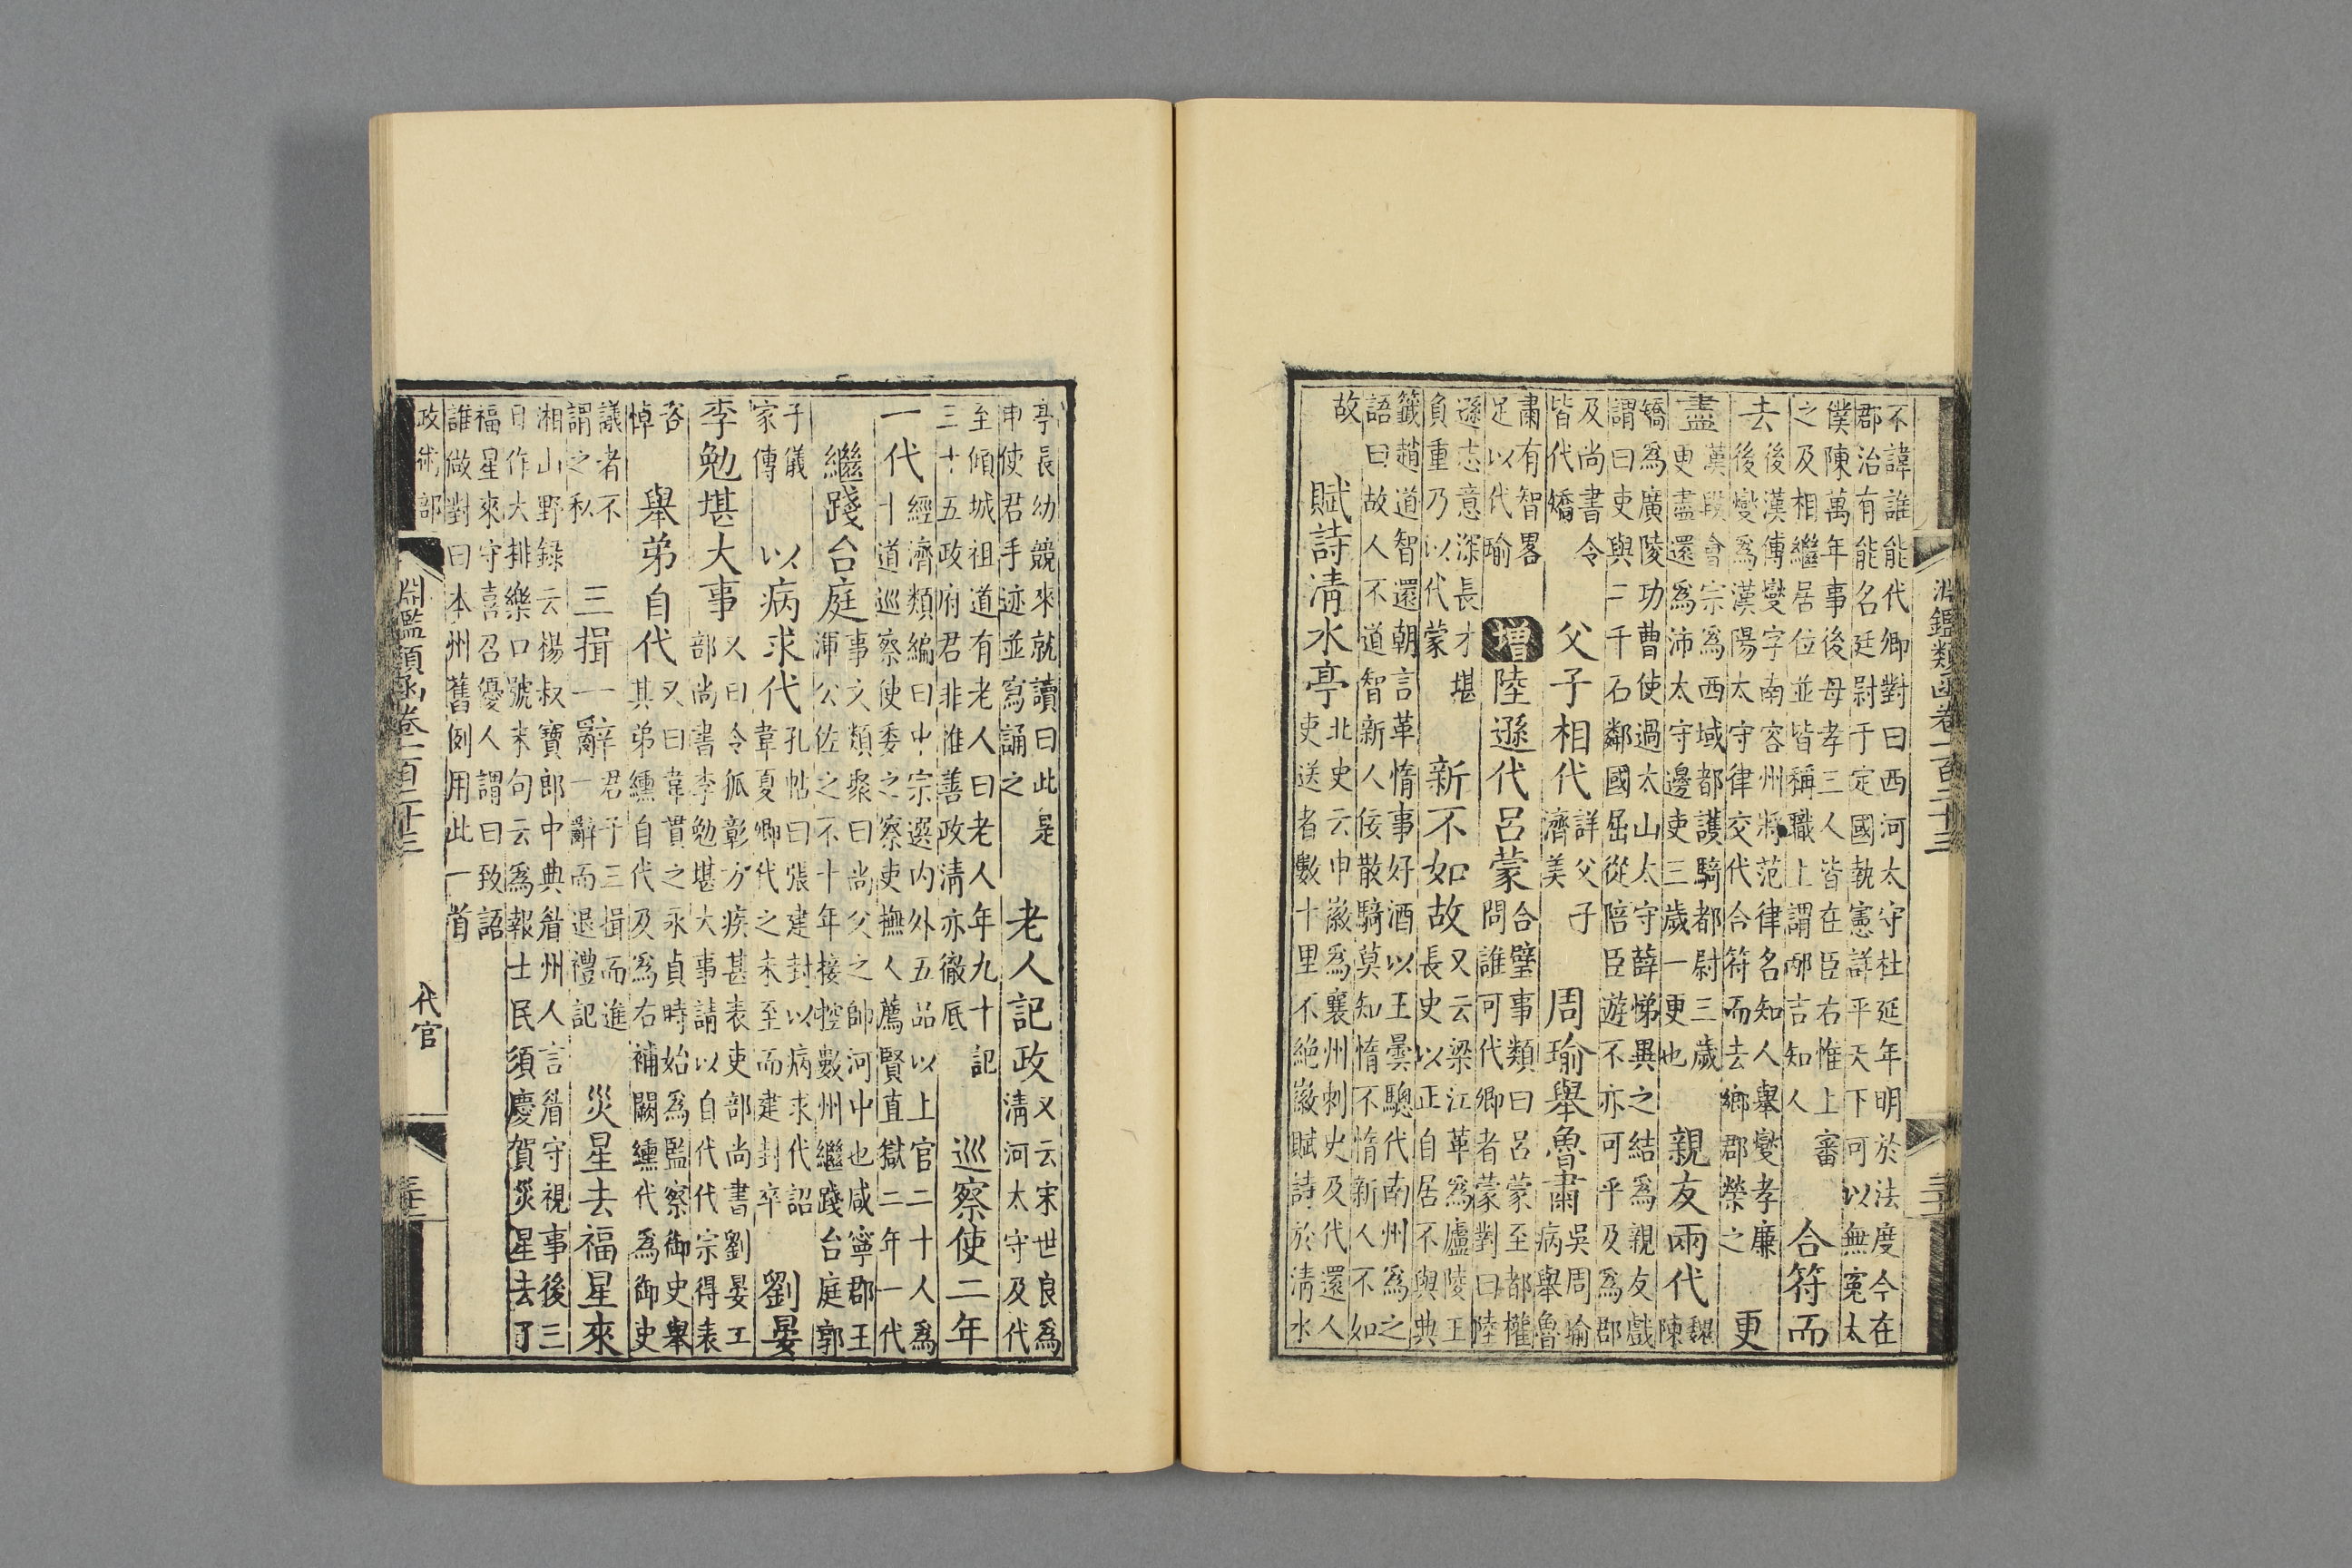 淵鑑類函卷一百二十三
三十
不諱誰能代卿對曰西河太守杜延年明於法度今在
郡治有能名廷尉于定國執憲詳平天下可以無冤太
僕陳萬年事後母孝三人皆在臣右惟上審
之及相繼居位並皆稱職上謂邴吉知人
合符而
去
後漢傳燮字南容州將范律名知人舉燮孝廉
後燮爲漢陽太守律交代合符而去鄉郡榮之
更
盡
漢段會宗爲西域都護騎都尉三歲
更盡還爲沛太守邊吏三歲一更也
親友兩代
魏
陳
矯爲廣陵功曹使過太山太守薛悌異之結爲親友戲
謂曰吏與二千石鄰國屈從陪臣遊不亦可乎及爲郡
及尚書令
皆代矯
父子相代
詳父子
濟美
周瑜舉魯肅
吳周瑜
病舉魯
肅有智畧
足以代瑜
增陸遜代呂蒙
合璧事類曰呂蒙至都權
問誰可代卿者蒙對曰陸
遜志意深長才堪
負重乃以代蒙
新不如故
又云梁江革爲廬陵王
長史以正自居不與典
籤趙道智還朝言革惰事好酒以王曇聰代南州爲之
語曰故人不道智新人佞散騎莫知惰不惰新人不如
故
賦詩清水亭
北史云申徽爲襄州刺史及代還人
吏送者數十里不絕徽賦詩於清水
亭長幼競來就讀曰此是
申使君手迹並寫誦之
老人記政
又云宋世良爲
清河太守及代
至傾城祖道有老人曰老人年九十記
三十五政府君非惟善政清亦徹底
巡察使二年
一代
經濟類編曰中宗選內外五品以上官二十人爲
十道巡察使委之察吏撫人薦賢直獄二年一代
繼踐台庭
事文類聚曰尚父之帥河中也咸寧郡王
渾公佐之不十年接控數州繼踐台庭郭
子儀
家傳
以病求代
孔帖曰張建封以病求代詔
韋夏卿代之未至而建封卒
劉晏
李勉堪大事
又曰令狐彰方疾甚表吏部尚書劉晏工
部尚書李勉堪大事請以自代代宗得表
咨
悼
舉弟自代
又曰韋貫之永貞時始爲監察御史舉
其弟纁自代及爲右補闕纁代爲御史
議者不
謂之私
三揖一辭
君子三揖而進
一辭而退禮記
災星去福星來
湘山野録云楊叔寶郎中典眉州人言眉守視事後三
日作大排樂口號末句云爲報士民須慶賀災星去了
福星來守喜召優人謂曰致語
誰做對曰本州舊例用此一首
政術部
代官
淵鑑類函卷一百二十三